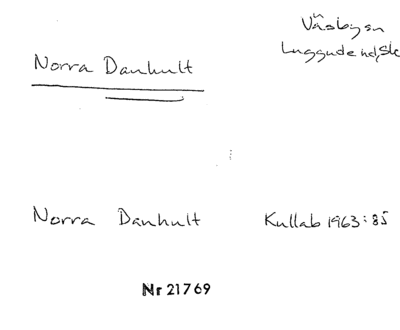 Väsby sn
Luggude hd, Sk
Norra Danhult
Norra Danhult
Kullab 1963:85
Nr 21769